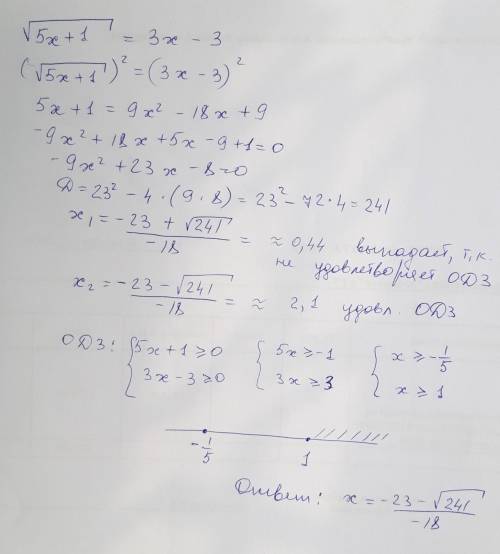 √(5x+1) = 3x - 3
(√(5x+1))² = (3x - 3)²
5x + 1 = 9x² - 18x + 9
-9x² + 18x + 5x - 9 + 1 = 0
-9x² + 23x - 8 = 0
D = 23² - 4 · (9 · 8) = 23² - 72 · 4 = 241
x₁ = (-23 + √241)/(-18) = ≈ 0,44 выпадает, т.к.
не удовлетворяет ОДЗ
x₂ = (-23 - √241)/(-18) = ≈ 2,1 удовл. ОДЗ
ОДЗ: { 5x + 1 ≥ 0 { 5x ≥ -1 { x ≥ -1/5
3x - 3 ≥ 0 3x ≥ 3 x ≥ 1
-1/5 1
Ответ: x = (-23 - √241)/(-18)